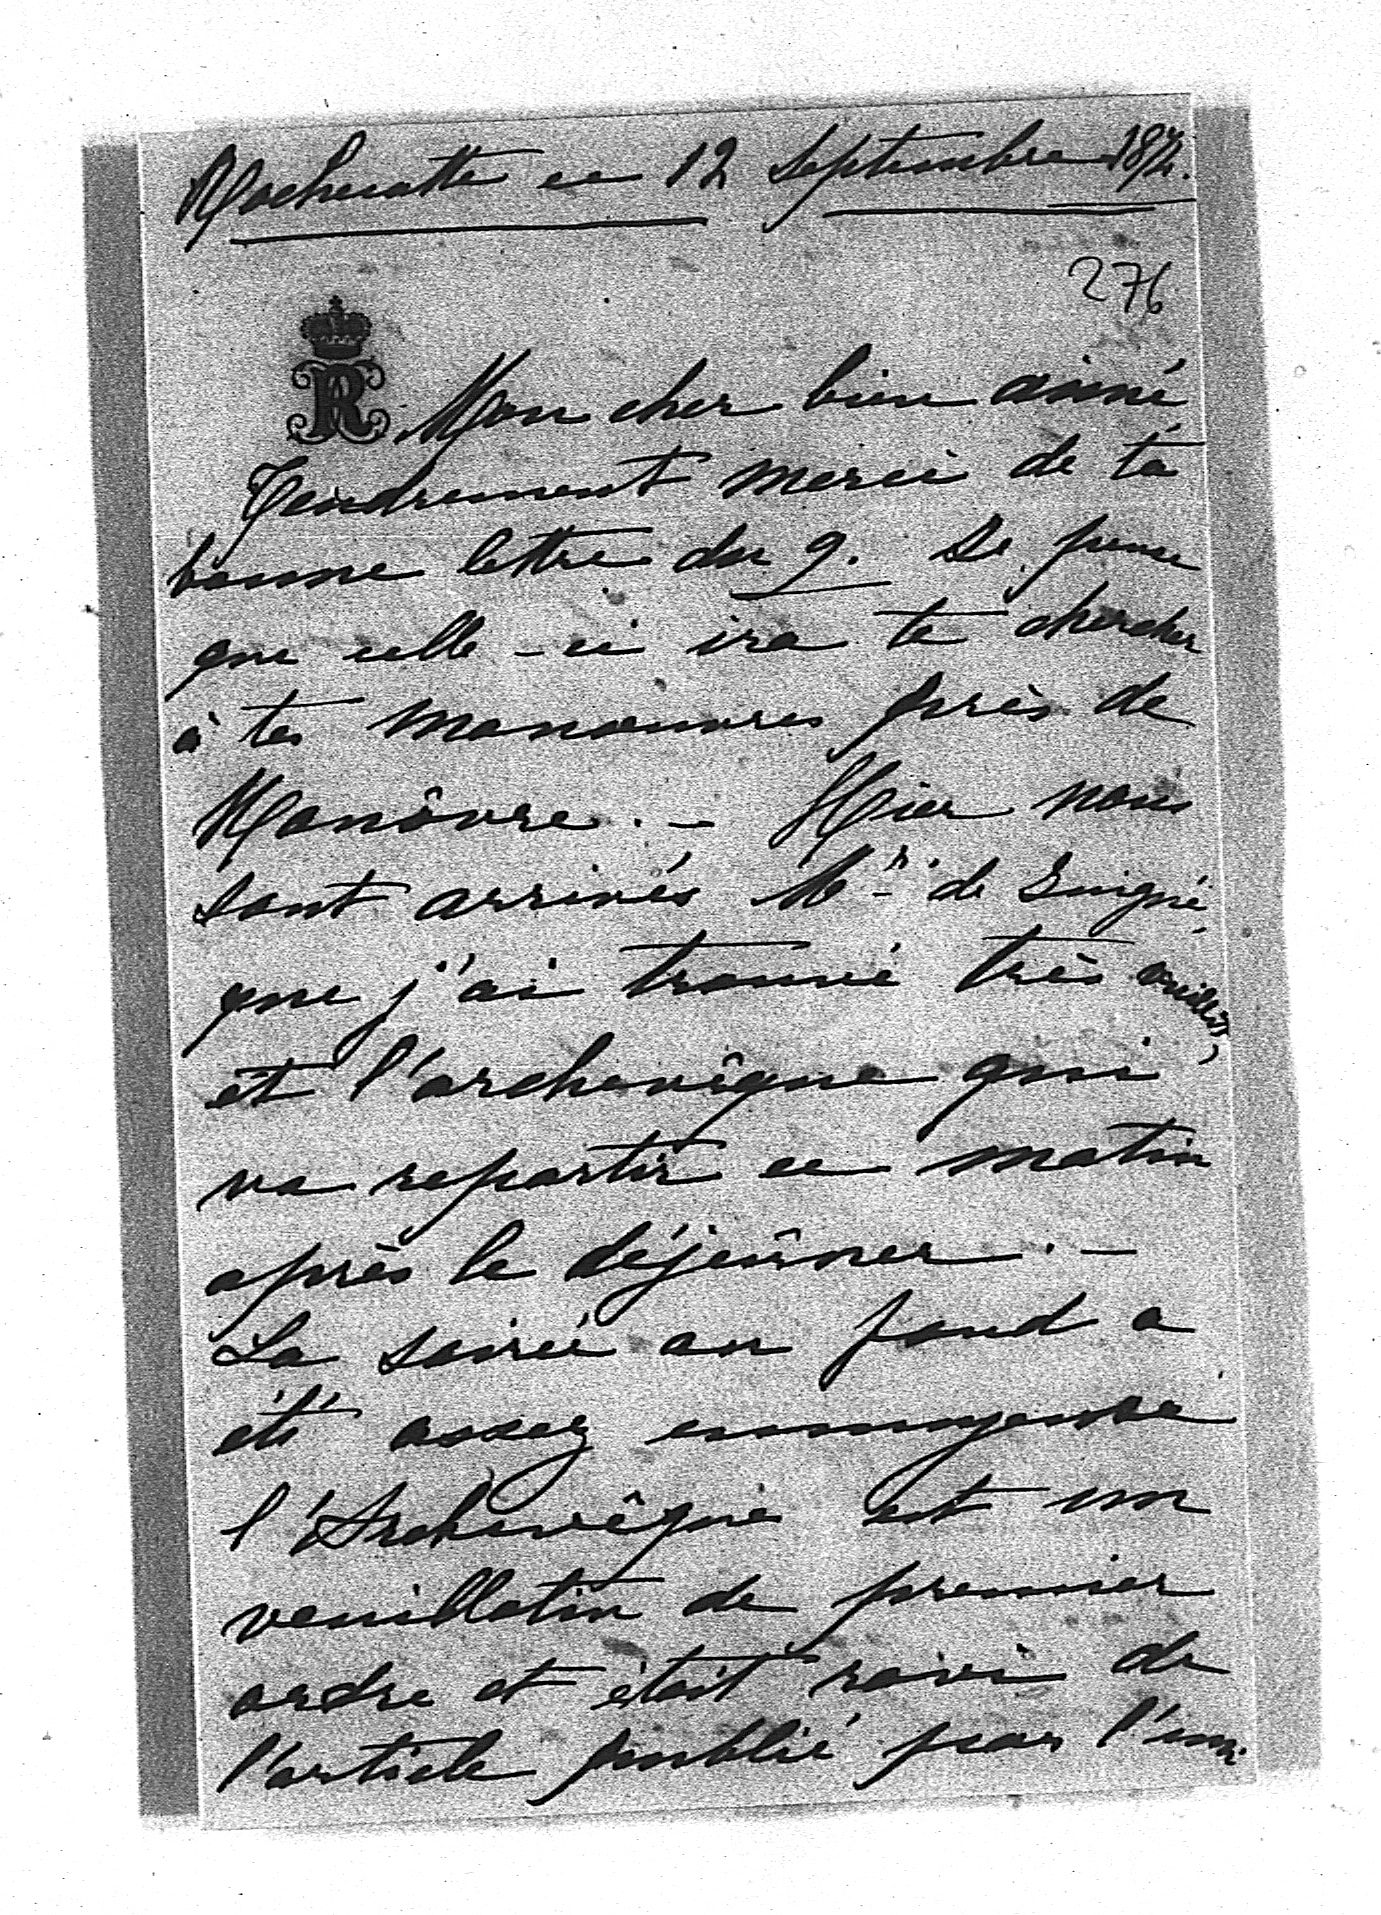 Rochecotte ce 12 Septembre 1874.
276
R
Mon cher bien aimé
Tendrement merci de ta
bonne lettre du 9. Je pense
que celle-ci ira te chercher
à tes manœuvres près de
Hanôvre. - Hier nous
sont arrivés Mr. de
que j'ai trouvé très vieilli,
et l'archevêque qui
va repartir ce matin
après le déjeûner. -
La soirée au fond a
été assez ennuyeuse
l'Archevêque est un
veuillotin de premier
ordre et était ravi de
l'article publié par l'uni-